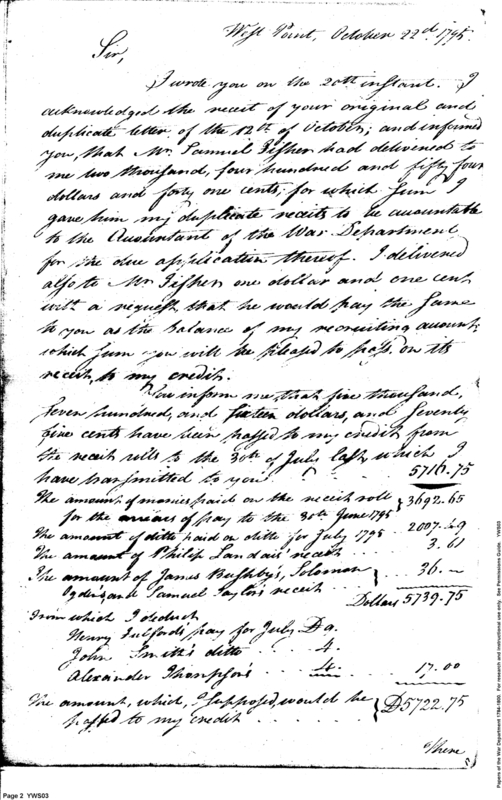 West Point, October 22d. 1795.
Sir,
I wrote you on the 20th instant. I
acknowledged the receit of your original and
duplicate letter of the 12th of October; and informed
you, that Mr. Samuel Fisher had delivered to
me two thousand, four hundred and fifty four
dollars and forty one cents; for which sum I
gave him my duplicate receits to be accountable
to the Accountant of the War Department
for the due application thereof. I delivered
also to Mr. Fisher one dollar and one cent
with a request that he would pay the same
to you as the balance of my recruiting account;
which sum you will be pleased to pass, on its
receit, to my credit.
You inform me, that five thousand,
seven hundred, and sixteen dollars, and seventy
five cents have been passed to my credit from
the receit rolls to the 30th of July last, which I
have transmitted to you 5716.75
The amount of monies paid on the receit rolls
for the arrears of pay to the 30th June 1795 } 3692.65
The amount of ditto paid on ditto for July 1795 2007.49
The amount of Philip Landais' receit 3.61
The amount of James Bushby's, Soloman
Ogden's and Samuel Taylor's receit } 36.—
Dollars 5739.75
From which I deduct
Henry Fulford's pay for July Do.
John Smith's ditto 4.
Alexander Thompson's 4. 17.00
The amount, which, I supposed, would be
passed to my credit } D5722.75
There
Page 2 YWS03
Papers of the War Department 1784-1800. For research and instructional use only. See Permissions Guide. YWS03